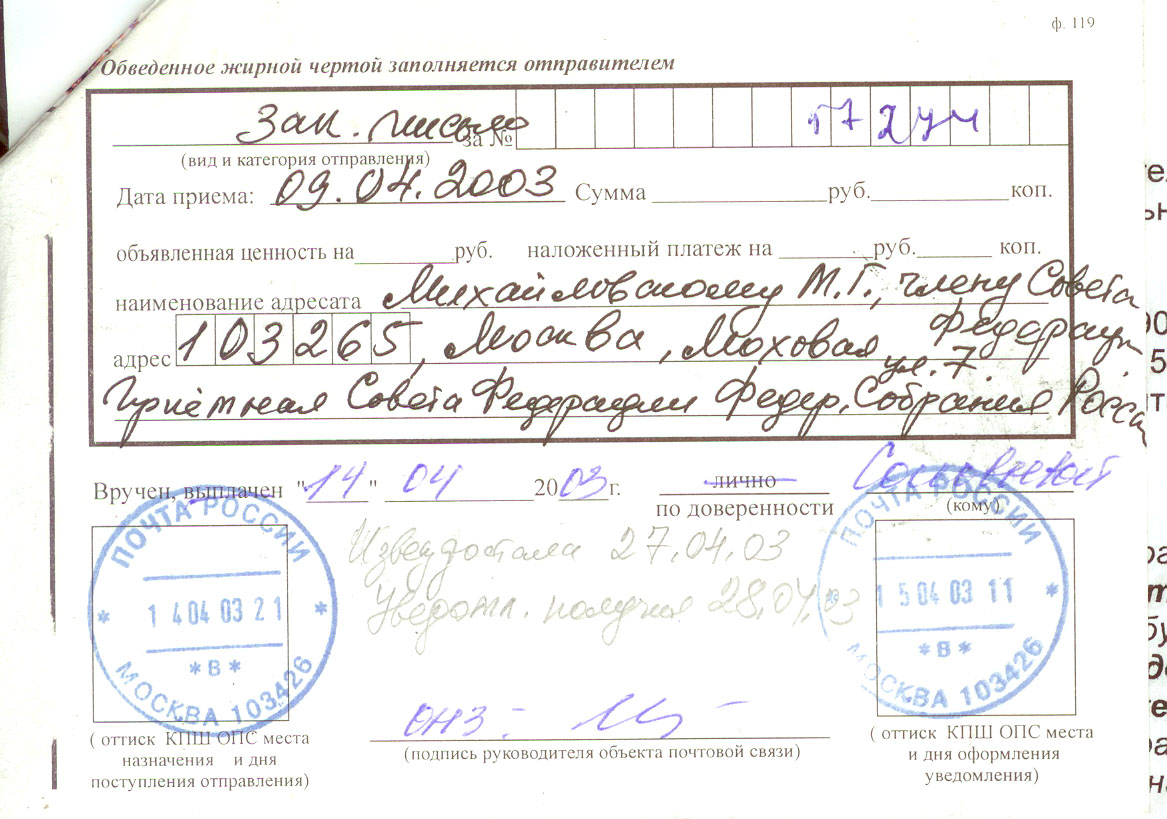 ф. 119
Обведенное жирной чертой заполняется отправителем
Зак. письмо за №
(вид и категория отправления)
Дата приема: 09.04.2003 Сумма руб. коп.
объявленная ценность на руб. наложенный платеж на руб. коп.
наименование адресата Михайловскому М.Г., члену Совета
Федерации
адрес 103265, Москва, Моховая ул. 7.
Приёмная Совета Федерации Федер. Собрания России
Вручен, выплачен "14" 04 2003 г. лично
по доверенности
(кому)
27.04.03
Уведомл. получил 28.04.03
ПОЧТА РОССИИ
14 04 03 21
* В *
МОСКВА 103426
ПОЧТА РОССИИ
15 04 03 11
* В *
МОСКВА 103426
(подпись руководителя объекта почтовой связи)
( оттиск КПШ ОПС места
назначения и дня
поступления отправления)
( оттиск КПШ ОПС места
и дня оформления
уведомления)